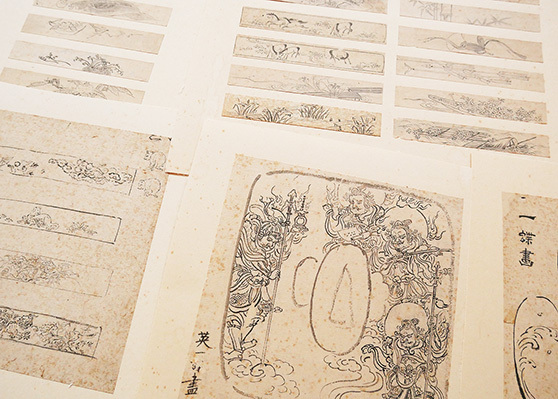 英一畫
一蝶畫